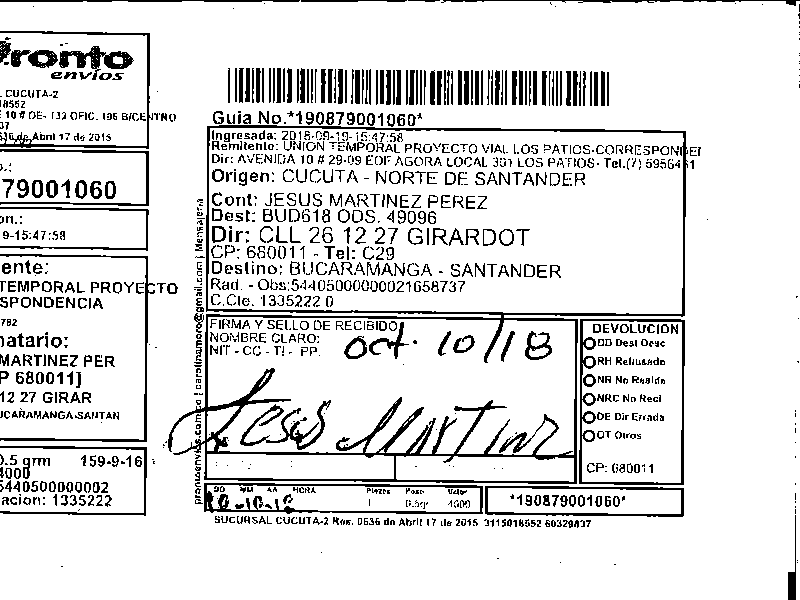 Pronto
envíos
CUCUTA-2
18552
E 10 # DE- 132 OFIC. 106 B/CENTRO
37
636 de Abril 17 de 2015
o.:
79001060
on.:
9-15:47:58
ente:
TEMPORAL PROYECTO
SPONDENCIA
782
natario:
MARTINEZ PER
P 680011]
12 27 GIRAR
UCARAMANGA-SANTAN
0.5 grm 159-9-16
4000
5440500000002
acion: 1335222
Guia No.*190879001060*
Ingresada: 2018-09-19-15:47:58
Remitente: UNION TEMPORAL PROYECTO VIAL LOS PATIOS-CORRESPONDEI
Dir: AVENIDA 10 # 29-09 EDF AGORA LOCAL 301 LOS PATIOS- Tel.(7) 5956461
Origen: CUCUTA - NORTE DE SANTANDER
Cont: JESUS MARTINEZ PEREZ
Dest: BUD618 ODS. 49096
Dir: CLL 26 12 27 GIRARDOT
CP: 680011 - Tel: C29
Destino: BUCARAMANGA - SANTANDER
Rad. - Obs:54405000000021658737
C.Cte. 1335222 0
FIRMA Y SELLO DE RECIBIDO
NOMBRE CLARO:
NIT - CC - TI - PP.
oct. 10/18
Jesus Martinz
DEVOLUCION
DD Dest Desc
RH Rehusado
NR No Reside
NRC No Recl
DE Dir Errada
OT Otros
CP: 680011
DD MM AA HORA
10-10-18
Piezas Peso Valor
1 0.5gr 4000
*190879001060*
SUCURSAL CUCUTA-2 Res. 0636 de Abril 17 de 2015 3115018552 60329837